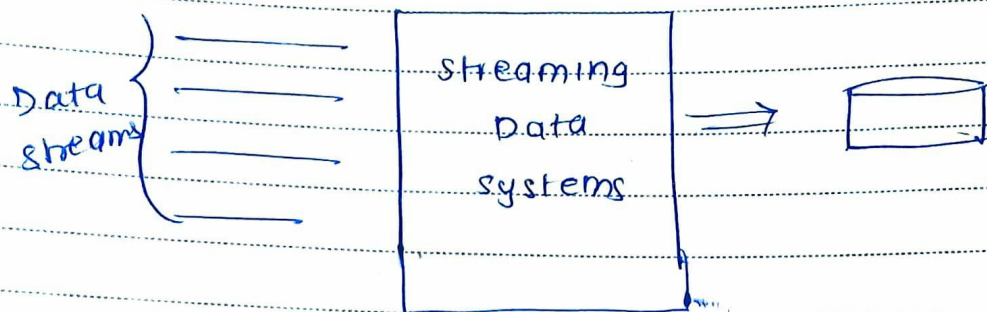 Data
streams
streaming
Data
systems